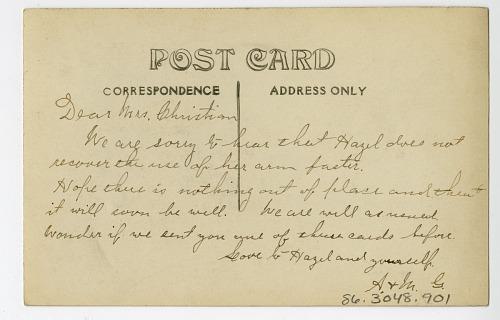 POST CARD
CORRESPONDENCE ADDRESS ONLY
Dear Mrs. Christian
We are sorry to hear that Hazel does not
recover the use of her arm faster.
Hope there is nothing out of place and that
it will soon be well. We are well as usual
Wonder if we sent you one of these cards before.
Love to Hazel and yourself.
A & M. G.
86.3048.901